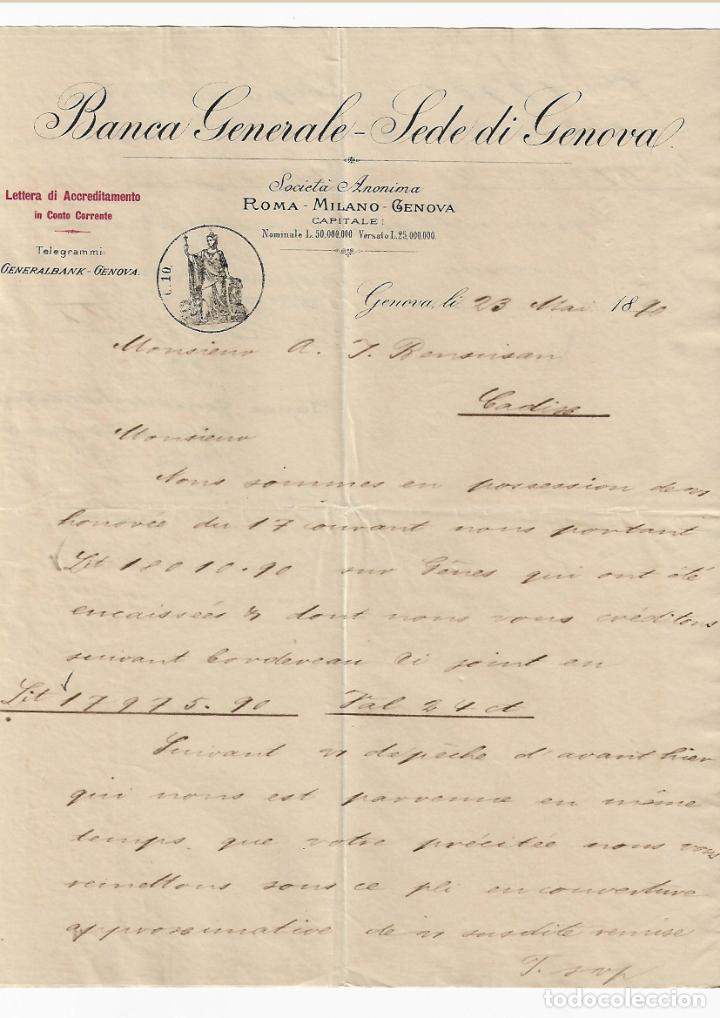 Banca Generale - Sede di Genova.
Società Anonima
ROMA - MILANO - GENOVA
CAPITALE:
Nominale L. 50,000,000 Versato L. 25,000,000.
Lettera di Accreditamento
in Conto Corrente
Telegrammi
GENERALBANK - GENOVA.
C. 10.
Genova, li 23 Mai 1890
Monsieur A. J. Bensusan
Cadix
Monsieur
Nous sommes en possession de v/
honorée du 17 courant nous portant
Lit 18010.90 sur Gênes qui ont été
encaissées & dont nous vous créditons
suivant bordereau ci joint en
Lit 17975.90 Val 24 ct
Suivant v/ dépêche d'avant hier
qui nous est parvenue en même
temps que votre précitée nous vous
remettons sous ce pli en couverture
approximative de v/ susdite remise
T. svp
todocoleccion